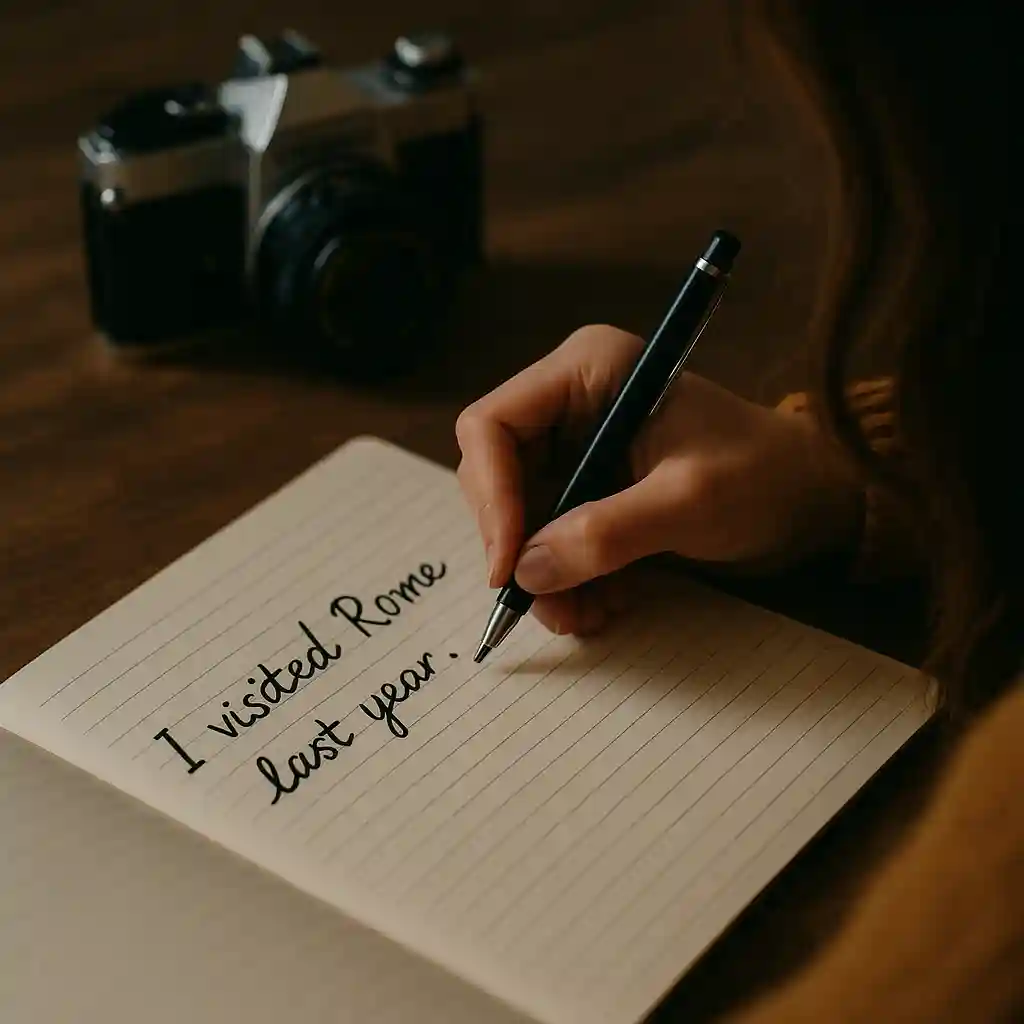 I visited Rome
last year.